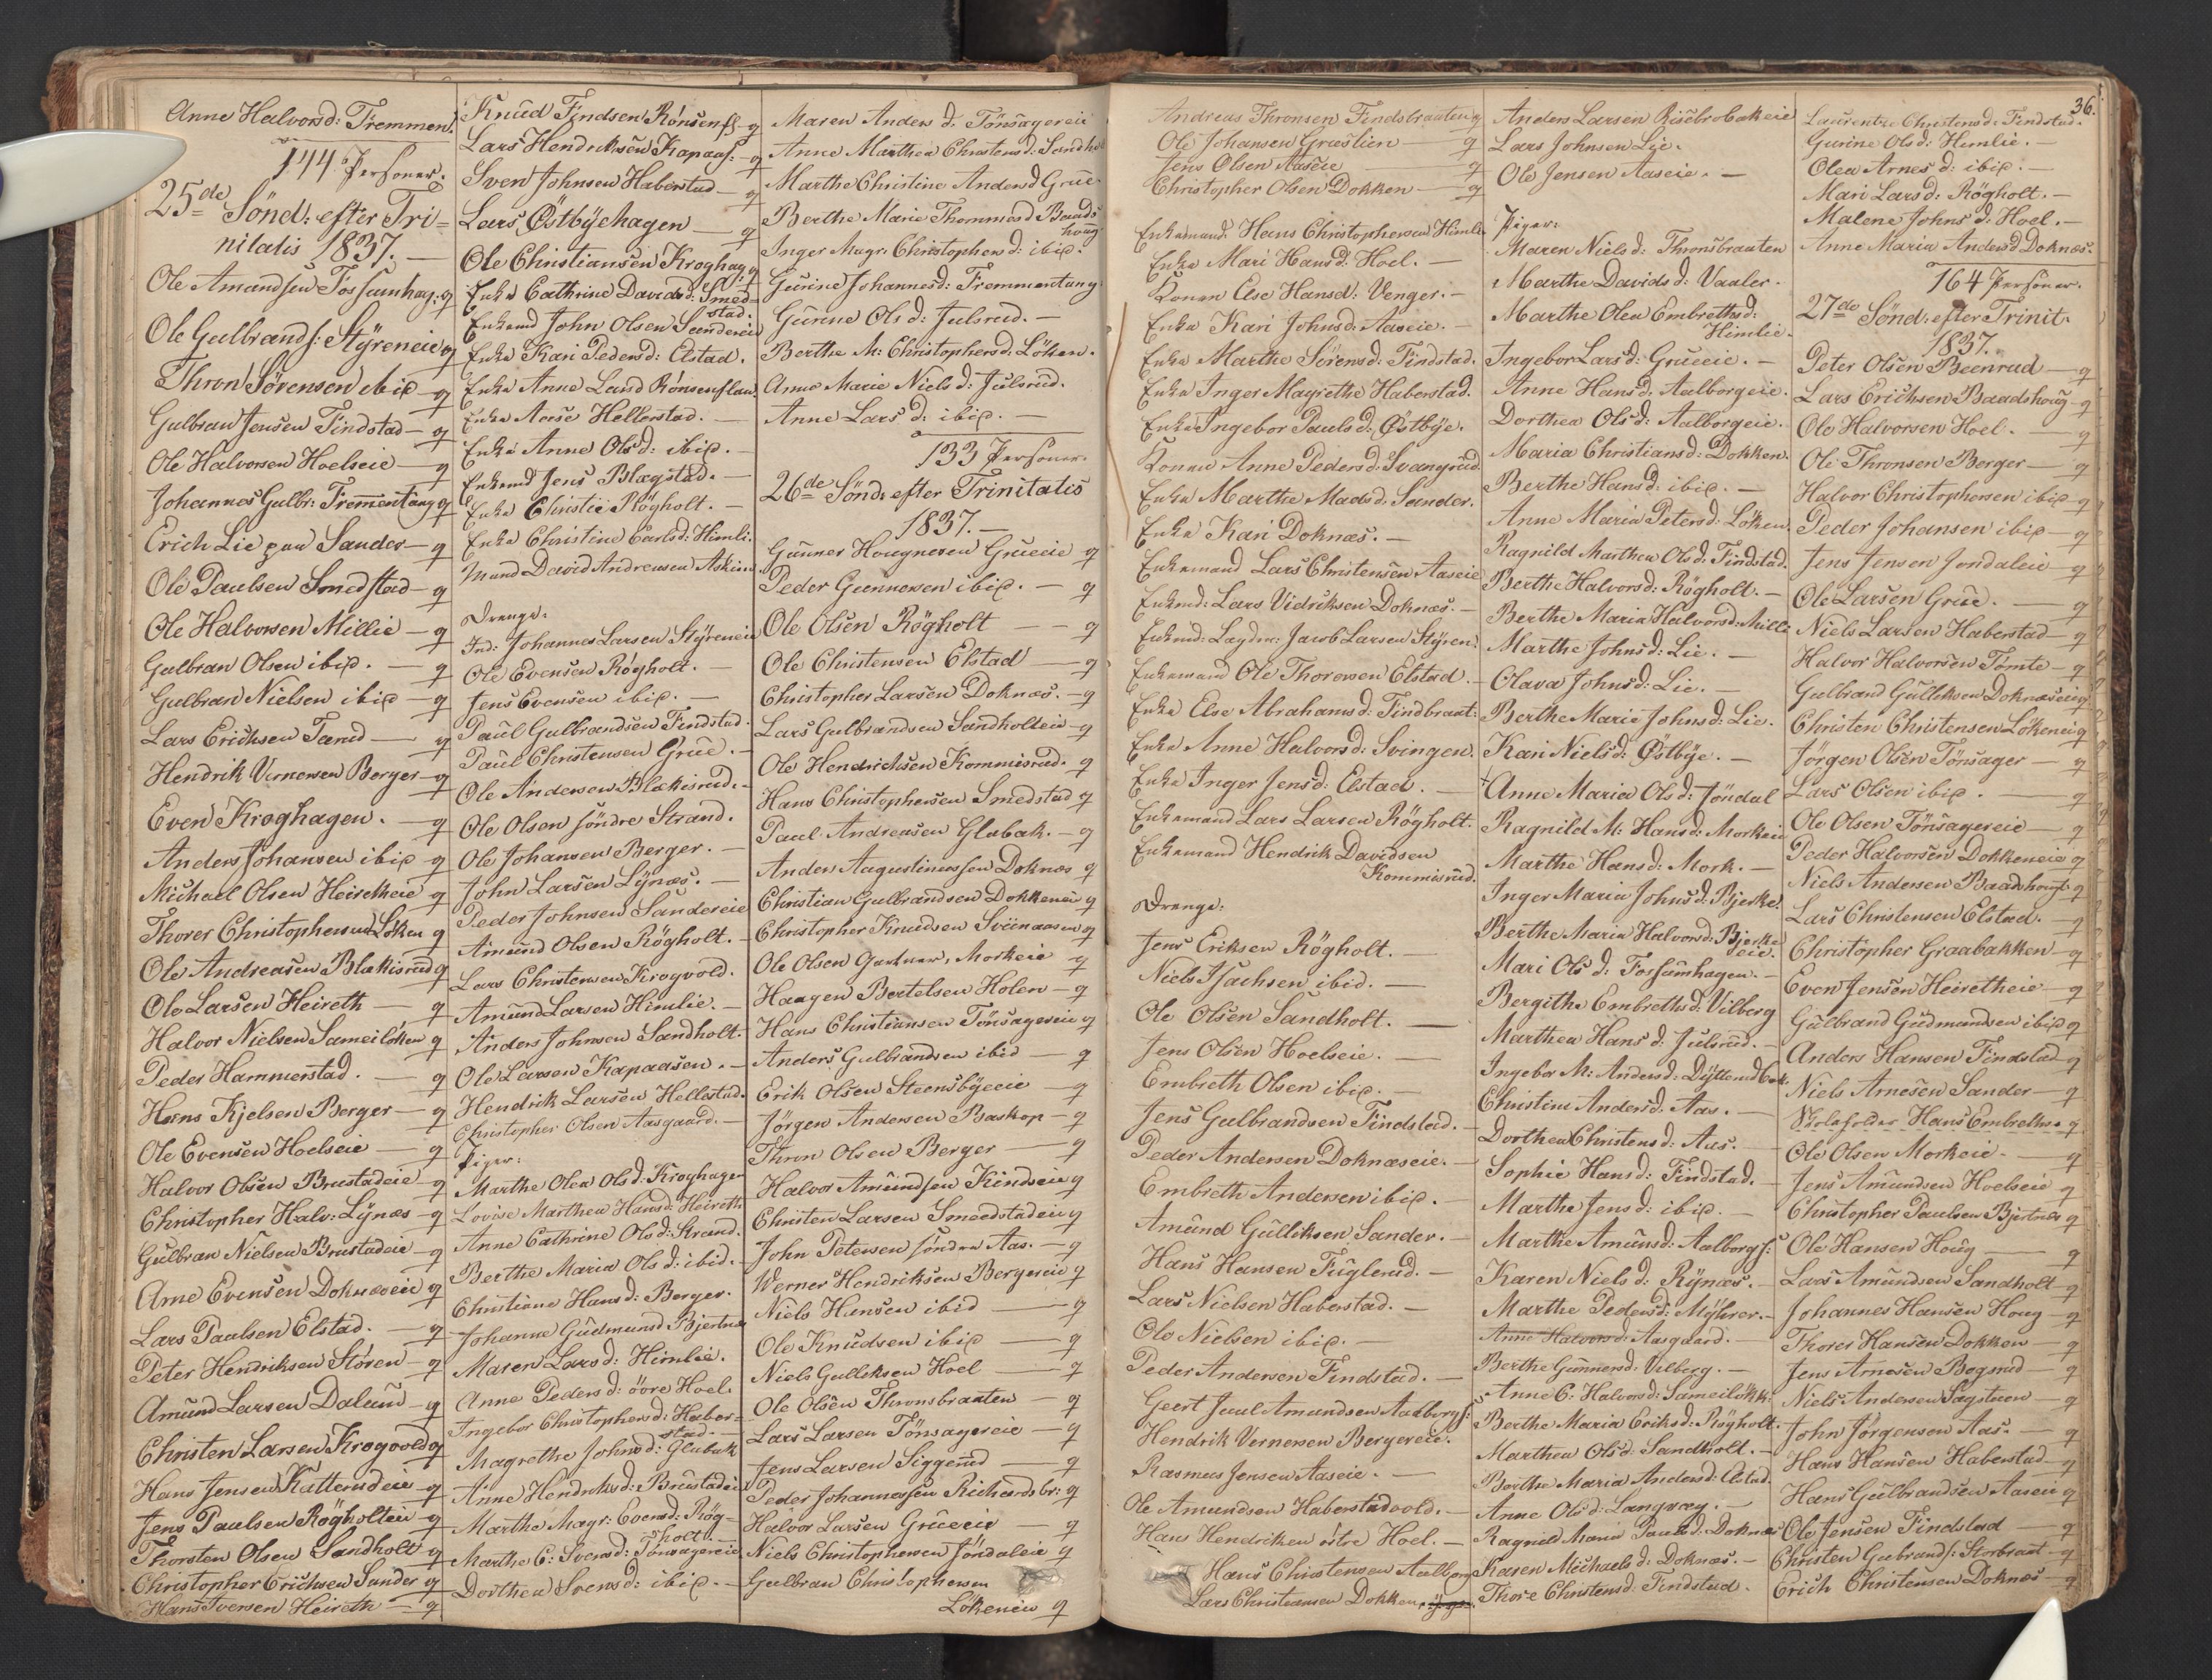 Anne Halvorsd: Tremmen.
144 Personer.
25de Sönd: efter Tri=
nitatis 1837. —
Ole Amandsen Fossumhag: — g
Ole Gulbrands: Styreneie g
Thron Sörensen ibid — g
Gulbran Jensen Findstad — g
Ole Halvorsen Hoelseie — g
Johannes Gulbr: Trementang g
Erich Lie paa Sander — g
Ole Paulsen Smedstad — g
Ole Halvorsen Millie — g
Gulbran Olsen ibid. — g
Gulbran Nielsen ibid — g
Lars Erichsen Tærud — g
Hendrik Vernersen Berger — g
Even Kroghagen. — g
Anders Johansen ibid — g
Michael Olsen Heiretheie g
Thorer Christophersen Löken g
Ole Andreasen Blækisrud g
Ole Larsen Heireth — g
Halvor Nielsen Sameilöken g
Peder Hammerstad. — g
Hans Kjelsen Berger — g
Ole Evensen Hoelseie — g
Halvor Olsen Brustadeie — g
Christopher Halv: Lynæs — g
Gulbran Nielsen Brustadeie — g
Arne Evensen Doknæseie g
Lars Paulsen Elstad. — g
Peter Hendriksen Stören — g
Amund Larsen Dalund — g
Christen Larsen Krogvold g
Hans Jensen Katterudeie — g
Jens Paulsen Rögholteie — g
Thorsten Olsen Sandholt g
Christopher Erichsen Sander g
Hans Iversen Heireth — g
Knud Findsen Rönsenfl — g
Lars Hendriksen Kapaas: — g
Sven Johnsen Haberstad — g
Lars Østbyehagen — g
Ole Christiansen Kroghag g
Enke Cathrine Davidsd: Smed=
stad.
Enkemd John Olsen Sandereie
Enke Kari Pedersd: Elstad.
Enke Anne Lund Rönsenflau.
Enke Aase Hellerstad. —
Enke Anne Olsd: ibid. —
Enkemd Jens Blagstad. —
Enke Christie Rögholt. —
Enke Christine Carlsd: Himli.
Mand David Andreasen Askim
Drenge:
Ind: Johannes Larsen Styreneie
Ole Evensen Rögholt. —
Jens Evensen ibid. —
Paul Gulbrandsen Findstad.
Paul Christensen Grue. —
Ole Andersen Blækisrud. —
Ole Olsen söndre Strand.
Ole Johansen Berger. —
John Larsen Lynæs. —
Peder Johnsen Sandereie
Amund Olsen Rögholt. —
Lars Christensen Krogvold.
Amund Larsen Himlie. —
Anders Johnsen Sandholt.
Ole Larsen Kapaasen. —
Hendrik Larsen Hellestad.
Christopher Olsen Aasgaard. —
Piger:
Marthe Olea Olsd: Kroghagen
Lovise Marthea Hansd: Heireth
Anne Cathrine Olsd: Strand.
Berthe Maria Olsd: ibid. —
Christiane Hansd: Berger.
Johanne Gudmunsd Bjertnæs
Maren Larsd: Himlie.
Anne Pedersd: övre Hoel.
Ingebor Christophersd: Haber=
stad. —
Magrethe Johnsd: Glabak
Anne Hendriksd: Brustadeie
Marthe Magr: Evensd: Rög=
holt. —
Marthe C: Svensd: Tönsagereie
Dorthea Svensd: ibid. —
Maren Andersd: Tönsagereie
Anne Marthea Christensd: Sandho
Marthe Christine Andersd Grue.
Berthe Marie Thommasd Baads
houg
Inger Magr: Christophersd: ibid.
Gurine Johannesd: Tremmentang
Gurine Olsd: Julsrud. —
Berthe M: Christophersd: Löken.
Anne Marie Nielsd: Julsrud.
Anne Larsd: ibid. —
133 Personer.
26de Sönd: efter Trinitatis
1837. —
Gunner Hougnesen Grueeie g
Peder Gunnersen ibid. — g
Ole Olsen Rögholt — g
Ole Christensen Elstad — g
Christopher Larsen Doknæs. — g
Lars Gulbrandsen Sandholteie — g
Ole Hendrichsen Kommisrud. g
Hans Christophersen Smedstad g
Paul Andreasen Glabak. — g
Anders Augustinussen Doknæs g
Christian Gulbrandsen Dokkeneie g
Christopher Knudsen Sviinaasen g
Ole Olsen Gartner, Morkeie g
Haagen Bertelsen Holen — g
Hans Christiansen Tönsagereie g
Anders Gulbrandsen ibid — g
Erik Olsen Steensbyeeie — g
Jörgen Andersen Baskop — g
Thron Olsen Berger — g
Halvor Amundsen Kindseie g
Christen Larsen Smedstadeie g
John Petersen söndre Aas. — g
Werner Hendriksen Bergereie g
Niels Hansen ibid — g
Ole Knudsen ibid — g
Niels Gulleksen Hoel — g
Ole Olsen Thronsbraaten — g
Lars Larsen Tönsagereie — g
Jens Larsen Siggerud — g
Peder Johannessen Richardsbr: g
Halvor Larsen Grueeie g
Niels Christophersen Jöndaleie g
Gulbran Christophersen
Lökeneie g
36.
Andreas Thronsen Findsbraaten g
Ole Johansen Græslien — g
Jens Olsen Aaseie — g
Christopher Olsen Dokken — g
Enkemand: Hans Christophersen Himli
Enke Mari Hansd: Hoel. —
Konen Else Hansd: Venger. —
Enke Kari Johnsd: Aaseie. —
Enke Marthe Sörensd: Findstad.
Enke Inger Magrethe Haberstad.
Enke Ingebor Paulsd: Østbye.
Konen Anne Pedersd: Svangrud.
Enke Marthe Madsd: Sander.
Enke Kari Doknæs. —
Enkemand Lars Christensen Aaseie
Enkemd: Lars Vidriksen Doknæs. —
Enkemd: Lægdm: Jacob Larsen Styren:
Enkemand Ole Thorersen Elstad. —
Enke Else Abrahamsd: Findbraat:
Enke Anne Halvorsd: Svingen.
Enke Inger Jensd: Elstad. —
Enkemand Lars Larsen Rögholt.
Enkemand Hendrik Davidsen
Kommisrud.
Drenge:
Jens Eriksen Rögholt. —
Niels Isachsen ibid. —
Ole Olsen Sandholt. —
Jens Olsen Hoelseie. —
Embreth Olsen ibid. —
Jens Gulbrandsen Findstad. —
Peder Andersen Doknæseie. —
Embreth Andersen ibid. —
Amund Gulleksen Sander. —
Hans Hansen Fuglerud. —
Lars Nielsen Haberstad. —
Ole Nielsen ibid. —
Peder Andersen Findstad. —
Geert Juul Amundsen Aalborgs:
Hendrik Vernersen Bergereie.
Rasmus Jensen Aaseie. —
Ole Amundsen Haberstadvold. —
Hans Hendriken östre Hoel. —
Hans Christensen Aalborg
Lars Christiansen Dokken.
Anders Larsen Risebrobakeie
Lars Johnsen Lie. —
Ole Jensen Aaseie. —
Piger:
Maren Nielsd: Thronsbraaten
Marthe Davidsd: Vaaler. —
Marthe Olea Embrethsd:
Himlie. —
Ingebor Larsd: Grueeie. —
Anne Hansd: Aalborgeie.
Dorthea Olsd: Aalborgeie.
Maria Christiansd: Dokken.
Berthe Hansd: ibid. —
Anne Maria Petersd: Löken.
Ragnild Marthea Olsd: Findstad.
Berthe Halvorsd: Rögholt. —
Berthe Maria Halvorsd: Milli
Marthe Johnsd: Lie. —
Olava Johnsd: Lie. —
Berthe Marie Johnsd: Lie.
Kari Nielsd: Østbye. —
Anne Maria Olsd: Jöndal
Ragnild M: Hansd: Morkeie
Marthe Hansd: Mork. —
Inger Maria Johnsd: Bjerke.
Berthe Maria Halvorsd: Bjerke
eie.
Mari Olsd: Fossumhagen. —
Bergithe Embrethsd: Vilberg
Marthea Hansd: Julsrud. —
Ingebor M: Andersd: Dytterud
Christine Andersd: Aas. —
Dorthea Christensd: Aas. —
Sophie Hansd: Findstad. —
Marthe Jensd: ibid. —
Marthe Amunsd: Aalborgs:
Karen Nielsd: Rynæs. —
Marthe Pedersd: Myhrer. —
Anne Halvorsd: Aasgaard. —
Berthe Gunnersd: Vilberg. —
Anne C: Halvorsd: Sameilökk:
Berthe Maria Eriksd: Rögholt.
Marthea Olsd: Sandholt. —
Berthe Maria Andersd: Elstad.
Anne Olsd: Langvæg. —
Ragnild Maria Paulsd: Doknæs
Karen Michaelsd: Doknæs. —
Thore Christensd: Findstad.
Laurentze Christensd: Findstad.
Gurine Olsd: Himlie. —
Olea Arnesd: ibid. —
Mari Larsd: Rögholt. —
Malene Johnsd: Hoel. —
Anne Maria Andersd Doknæs.
164 Personer.
27de Sönd: efter Trinit:
1837.
Peter Olsen Beenrud — g
Lars Erichsen Baadshoug — g
Ole Halvorsen Hoel. — g
Ole Thronsen Berger — g
Halvor Christophersen ibid g
Peder Johansen ibid — g
Jens Jensen Jondaleie — g
Ole Larsen Grue. — g
Niels Larsen Haberstad — g
Halvor Halvorsen Tömte — g
Gulbrand Gulleksen Doknæseie g
Christen Christensen Lökeneie g
Jörgen Olsen Tönsager — g
Lars Olsen ibid. — g
Ole Olsen Tönsagereie — g
Peder Halvorsen Dokkeneie g
Niels Andersen Baadshoug g
Lars Christensen Elstad. — g
Christopher Graabakken — g
Even Jensen Heiretheie — g
Gulbrand Gudmundsen ibid g
Anders Hansen Findstad g
Niels Arnesen Sander — g
Skoleholder Hans Embrethsen g
Ole Olsen Morkeie — g
Jens Amundsen Hoelseie g
Christopher Paulsen Bjertnæs g
Ole Hansen Houg — g
Lars Amundsen Sandholt — g
Johannes Hansen Houg — g
Thorer Hansen Dokken — g
Jens Arnesen Bogsrud — g
Niels Andersen Sagstuen — g
John Jörgensen Aas. — g
Hans Hansen Haberstad — g
Hans Gulbrandsen Aaseie g
Ole Jensen Findstad — g
Christen Gulbrands: Storbraat — g
Erich Christensen Doknæs — g